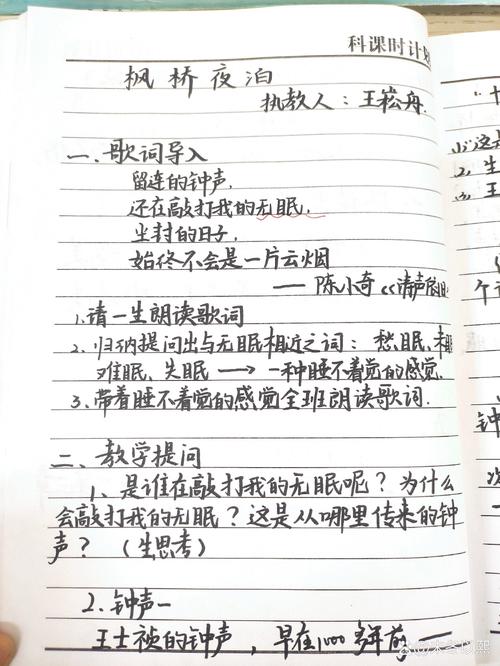 科课时计划
枫桥夜泊
执教人：王崧舟.
一、歌词导入
留连的钟声,
还在敲打我的无眠,
尘封的日子,
始终不会是一片云烟
——陈小奇《涛声依旧
1.请一生朗读歌词
2.归纳提问出与无眠相近之词：愁眠、未眠
难眠、失眠 → 一种睡不着觉的感觉.
3.带着睡不着觉的感觉全班朗读歌词.
二、教学提问
1、是谁在敲打我的无眠呢？为什么
会敲打我的无眠？这是从哪里传来的钟
声？（生思考）
2.钟声一
王士祯的钟声，早在1000多年前——
小这是
2.生
个
钟